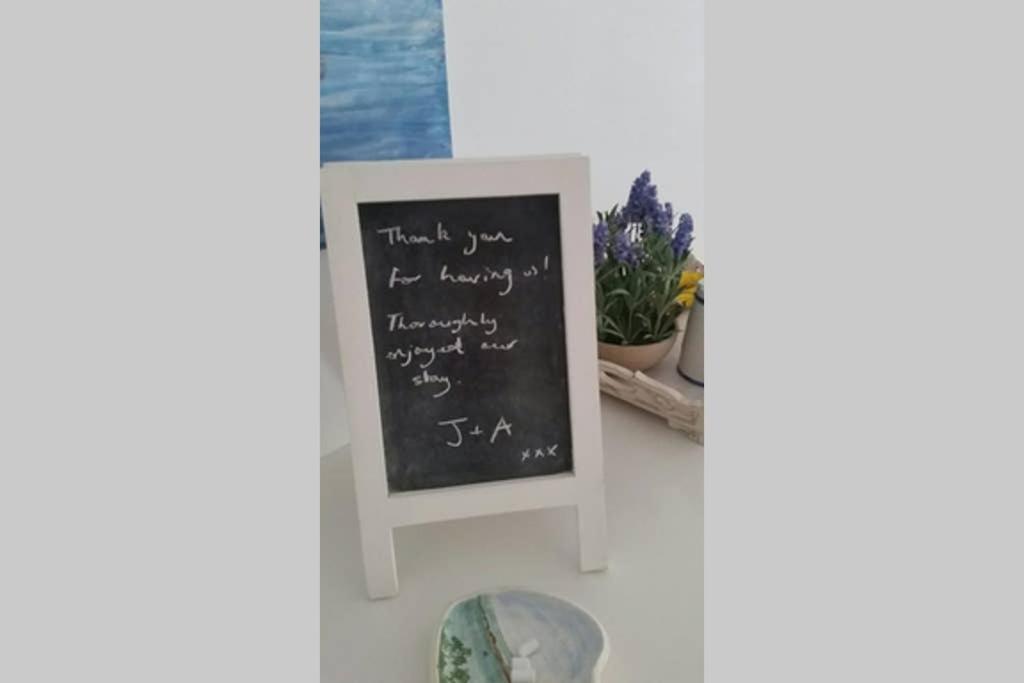 Thank you
for having us!
Thoroughly
enjoyed our
stay.
J + A
xxx